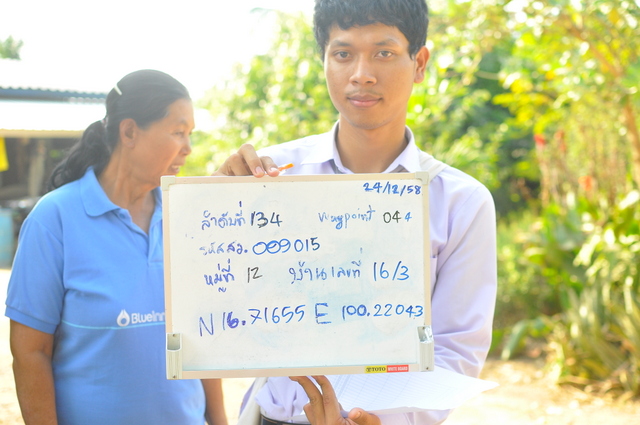 24/12/58
ลำดับที่ 134 Waypoint 044
รหัส สว. 009015
หมู่ที่ 12 บ้านเลขที่ 16/3
N 16.71655 E 100.22043